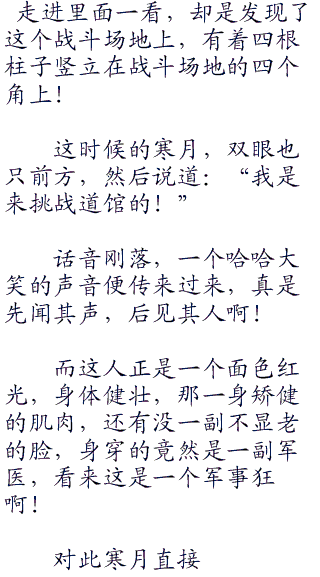 走进里面一看，却是发现了
这个战斗场地上，有着四根
柱子竖立在战斗场地的四个
角上！
这时候的寒月，双眼也
只前方，然后说道：“我是
来挑战道馆的！”
话音刚落，一个哈哈大
笑的声音便传来过来，真是
先闻其声，后见其人啊！
而这人正是一个面色红
光，身体健壮，那一身矫健
的肌肉，还有没一副不显老
的脸，身穿的竟然是一副军
医，看来这是一个军事狂
啊！
对此寒月直接